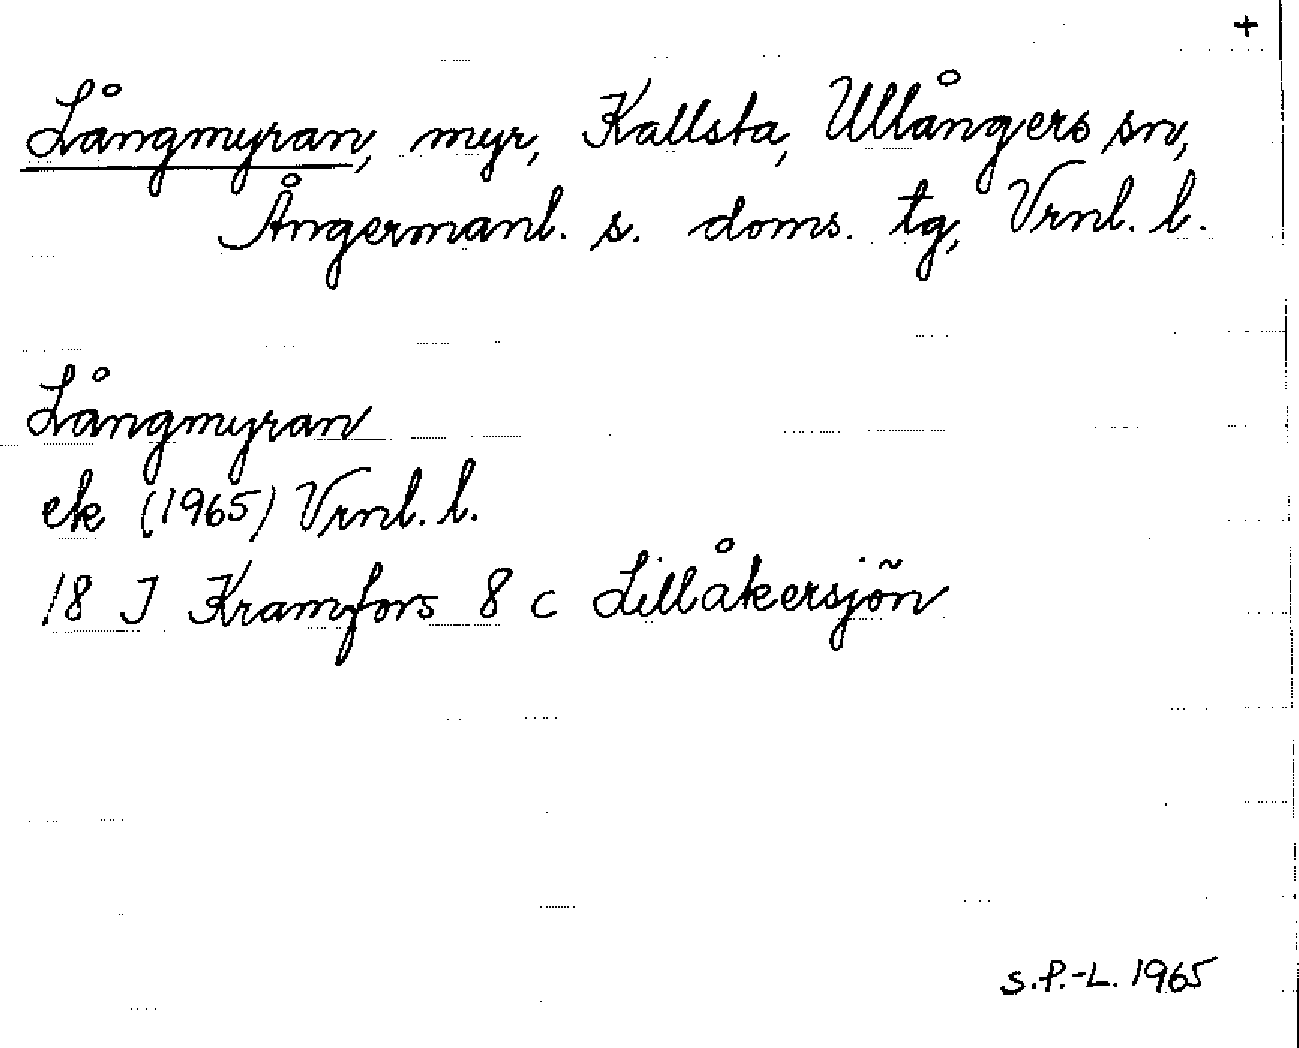 +
Långmyran, myr, Kallsta, Ullångers sn,
Ångermanl. s. doms. tg, Vrnl. l.
Långmyran
ek (1965) Vrnl. l.
18 J Kramfors 8 c Lillåkersjön
S.P.-L. 1965